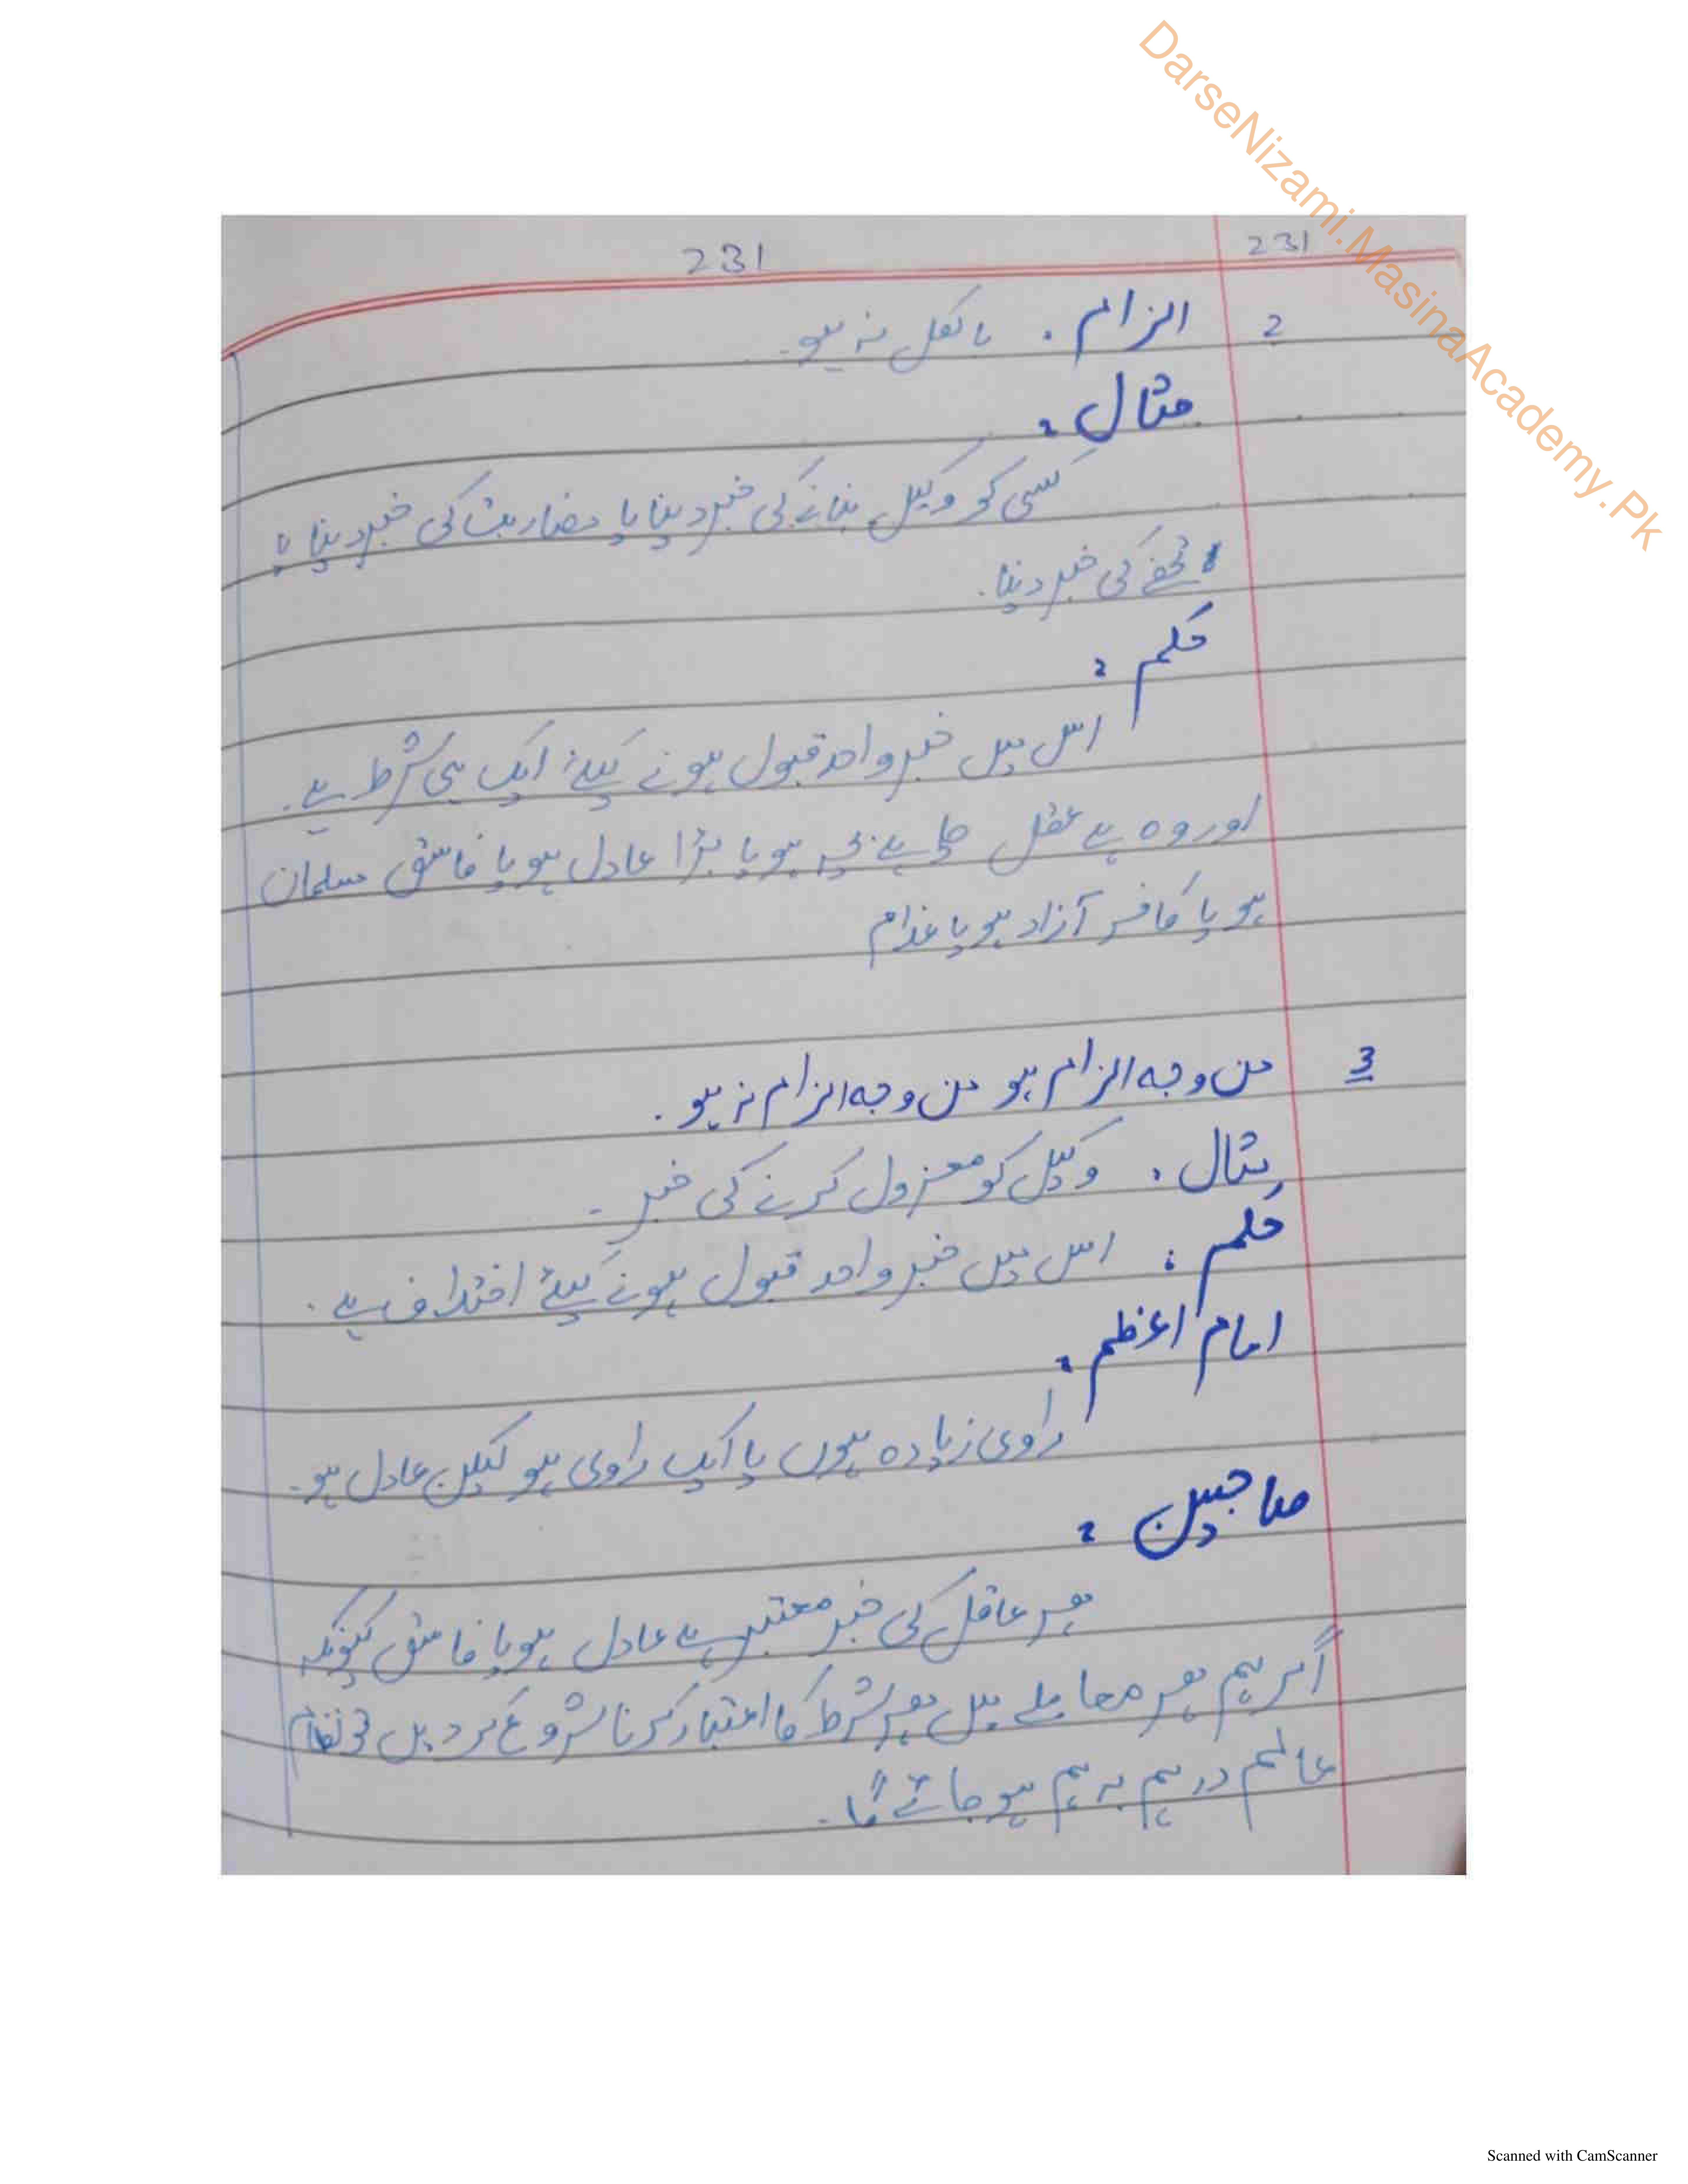 DarseNizami.MasinaAcademy.Pk
231 231
2 الزام . بالکل نہ ہو۔
مثال :
کسی کو وکیل بنانے کی خبر دینا یا مضاربت کی خبر دینا یا
تحفے کی خبر دینا.
حکم :
اس میں خبر واحد قبول ہونے کیلئے ایک ہی شرط ہے.
اور وہ ہے عقل چاہے بچہ ہو یا بڑا عادل ہو یا فاسق مسلمان
ہو یا کافر آزاد ہو یا غلام
3 من وجہ الزام ہو من وجہ الزام نہ ہو .
مثال . وکیل کو معزول کرنے کی خبر ۔
حکم : اس میں خبر واحد قبول ہونے کیلئے اختلاف ہے .
امام اعظم :
راوی زیادہ ہوں یا ایک راوی ہو لیکن عادل ہو۔
صاحبین :
ہر عاقل کی خبر معتبر ہے عادل ہو یا فاسق کیونکہ
اگر ہم ہر معاملے میں ہر شرط کا اعتبار کرنا شروع کر دیں تو نظام
عالم درہم برہم ہو جائے گا۔
Scanned with CamScanner